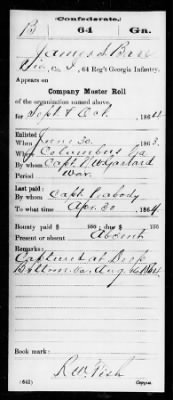 Confederate.
B 64 Ga.
James S. Barr
Co. I, 64 Reg't Georgia Infantry.
Appears on
Company Muster Roll
of the organization named above,
for Sept & Oct, 1864
Enlisted:
When June 30, 1863.
Where Columbus Ga
By whom Capt.
Period War.
Last paid:
By whom Capt Peabody
To what time Apr. 30, 1864
Bounty paid $ 100; due $ 100
Present or absent Absent
Remarks:
Captured at Deep
Bottom Va. Aug 16 1864
Book mark:
(642) Copyist.